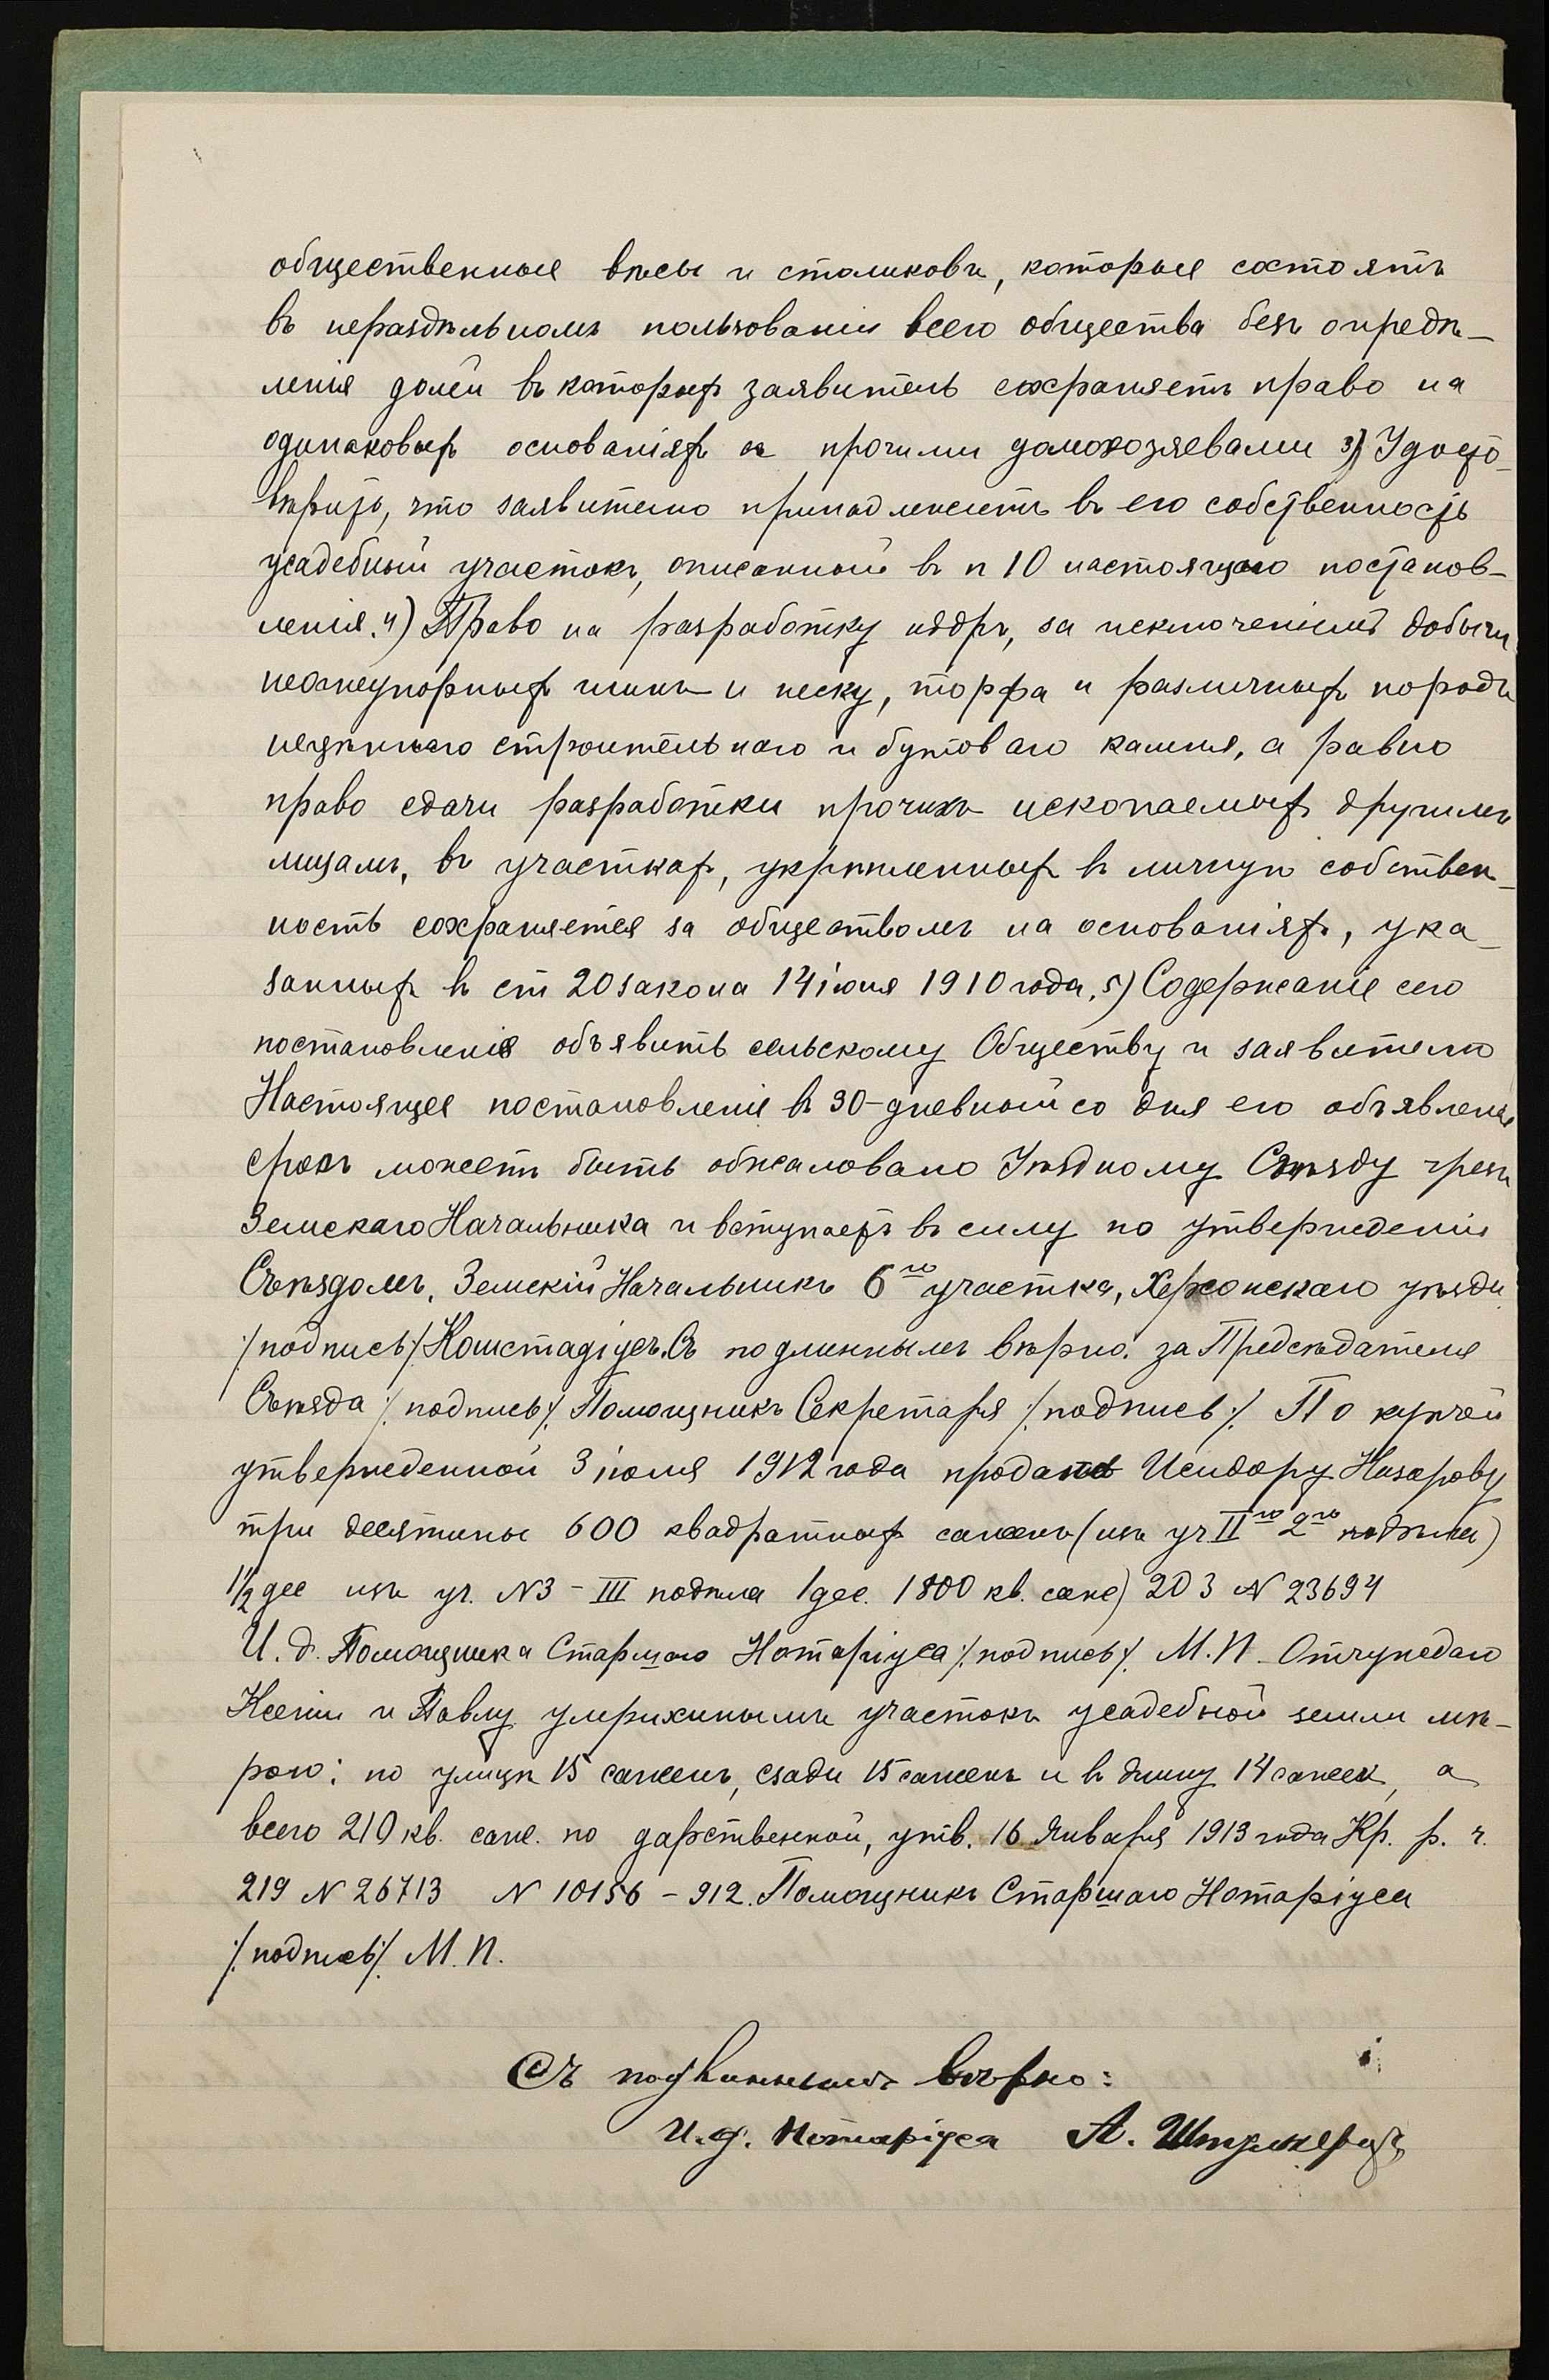 общественные вѣсы и столиковъ, которые состоятъ
въ нераздѣльномъ пользованіи всего общества безъ опредѣ-
ленія долей въ которыхъ заявитель сохраняетъ право на
одинаковыхъ основаніяхъ съ прочими домохозяевами 3) Удосто-
вѣрить, что заявителю принадлежитъ въ его собственность
усадебный участокъ, описанный въ п 10 настоящаго постанов-
ленія. 4) Право на разработку нѣдръ, за исключеніемъ добычи
неогнеупорныхъ глинъ и песку, торфа и различныхъ породъ
нецѣннаго строительнаго и бутоваго камня, а равно
право сдачи разработки прочихъ ископаемыхъ другимъ
лицамъ, въ участкахъ, укрѣпленныхъ въ личную собствен-
ность сохраняется за обществомъ на основаніяхъ, ука-
занныхъ въ ст 20 закона 14 іюня 1910 года. 5) Содержаніе сего
постановленія объявить сельскому Обществу и заявителю
Настоящее постановленіе въ 30-дневный со дня его объявленія
срокъ можетъ быть обжаловано Уѣздному Съѣзду чрезъ
Земскаго Начальника и вступаетъ въ силу по утвержденіи
Съѣздомъ. Земскій Начальникъ 6го участка, Херсонскаго уѣзда
/подпись/ Констадіусъ. Съ подлиннымъ вѣрно. за Предсѣдателя
Съѣзда /подпись/. Помощникъ Секретаря /подпись/. По купчей
утвержденной 3 іюля 1912 года продано Исидору Назарову
три десятины 600 квадратныхъ сажень (изъ уч. IIго 2го подѣла)
1½ дес изъ уч. N3 - III подѣла 1 дес. 1800 кв. саж) 203 N 23694
И. д. Помощника Старшаго Нотаріуса /подпись/. М. П. Отчуждаю
Ксеніи и Павлу Умрихинымъ участокъ усадебной земли мѣ-
рою: по улицѣ 15 сажень, сзади 15 сажень и въ длину 14 сажен, а
всего 210 кв. саж. по дарственной, утв. 16 Января 1913 года Кр. р. ч.
219 N 26713 N 10156 - 912. Помощникъ Старшаго Нотаріуса
/подпись/. М. П.
Съ подлиннымъ вѣрно:
И. д. Нотаріуса А.